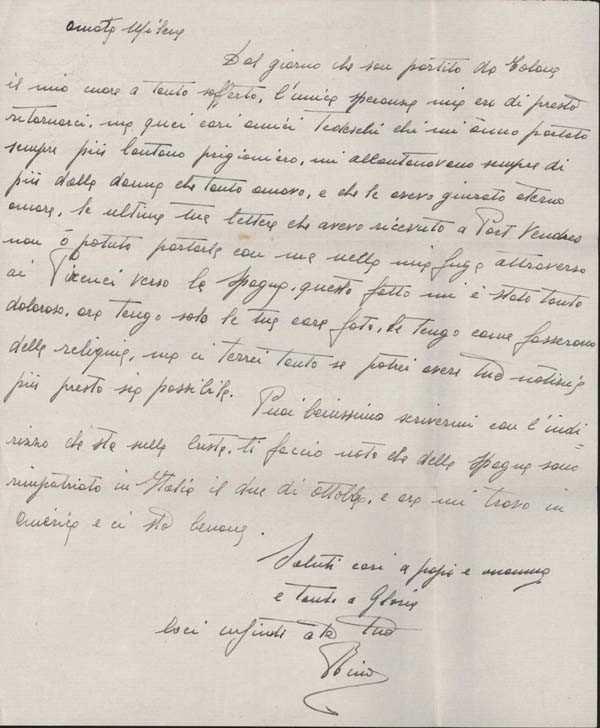 Amata Milena
Dal giorno che son partito da Tolone
il mio cuore a tanto sofferto, l'unica speranza mia era di presto
ritornarci, ma quei cari amici Tedeschi chi mi ànno portato
sempre più lontano prigioniero, mi allontanavano sempre di
più dalla donna che tanto amavo, e che le avevo giurato eterno
amore, le ultime tue lettere che avevo ricevuto a Port Vendres
non ò potuto portarle con me nella mia fuga attraverso
ai Pirenei verso la Spagna, questo fatto mi è stato tanto
doloroso, ora tengo solo le tue care foto, le tengo come fosserono
delle reliquie, ma ci terrei tanto se potrei avere tuo notizie
più presto sia possibile. Puoi benissimo scrivermi con l'indi=
rizzo che sta sulla busta, ti faccio noto che dalla Spagna sono
rimpatriato in Italia il due di ottobre, e ora mi trovo in
América e ci sto benone.
Saluti cari a papà e mamma
e tanti a Gloria
baci infiniti a te tuo